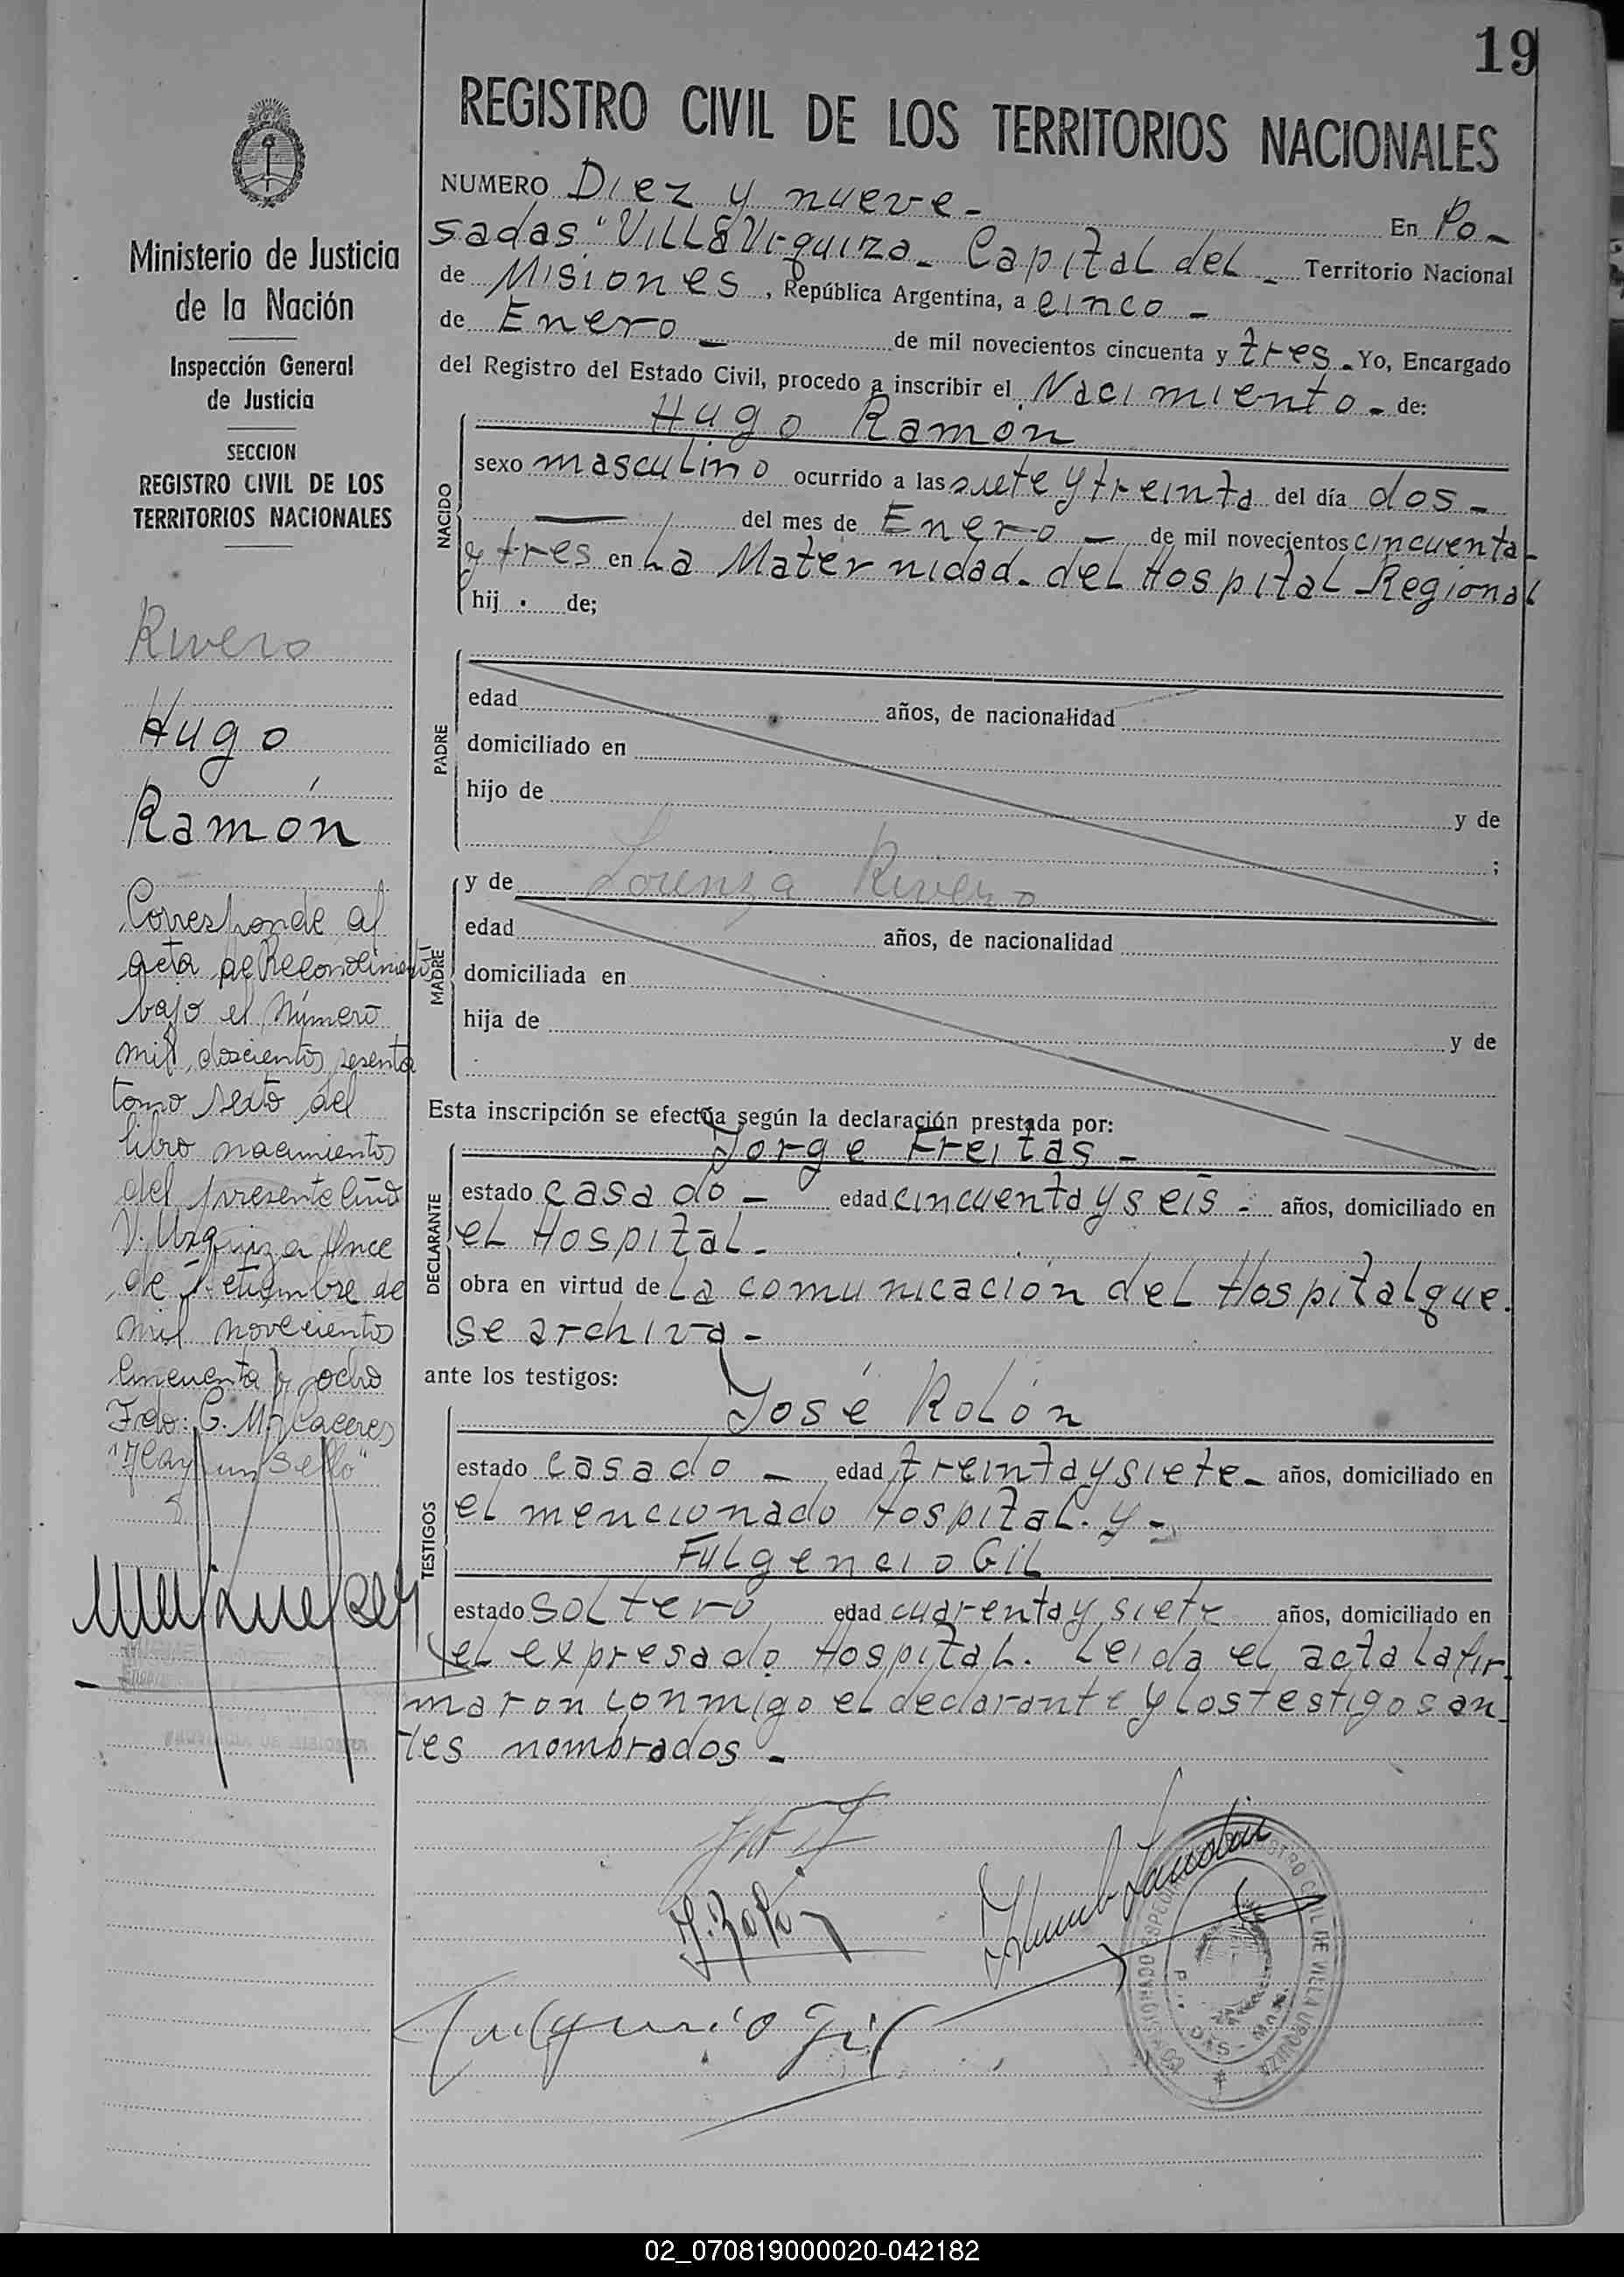 19
REGISTRO CIVIL DE LOS TERRITORIOS NACIONALES
Ministerio de Justicia
de la Nación
Inspección General
de Justicia
SECCION
REGISTRO CIVIL DE LOS
TERRITORIOS NACIONALES
Rivero
Hugo
Ramón
Corresponde al
acta de Reconocimiento
bajo el número
mil doscientos sesenta
tomo sexto del
libro nacimientos
del presente año
V. Urquiza Once
de Setiembre de
mil novecientos
cincuenta y ocho
Fdo: C. M. Caceres
"Hay un Sello"
NUMERO Diez y nueve - En Po-
sadas "Villa Urquiza - Capital del - Territorio Nacional
de Misiones, República Argentina, a cinco -
de Enero - de mil novecientos cincuenta y tres - Yo, Encargado
del Registro del Estado Civil, procedo a inscribir el Nacimiento - de:
NACIDO
Hugo Ramón
sexo masculino ocurrido a las siete y treinta del día dos -
— del mes de Enero - de mil novecientos cincuenta -
y tres en La Maternidad - del Hospital Regional
hij . de;
PADRE
edad años, de nacionalidad
domiciliado en
hijo de y de
;
MADRE
y de Lorenza Rivero
edad años, de nacionalidad
domiciliada en
hija de y de
Esta inscripción se efectúa según la declaración prestada por:
DECLARANTE
Jorge Freitas -
estado casado - edad cincuenta y seis - años, domiciliado en
el Hospital -
obra en virtud de la comunicación del Hospital que
se archiva -
ante los testigos:
TESTIGOS
José Rolón
estado casado - edad treinta y siete - años, domiciliado en
el mencionado Hospital. y -
Fulgencio Gil
estado soltero edad cuarenta y siete años, domiciliado en
el expresado Hospital. Leida el acta la fir-
maron conmigo el declarante y los testigos an-
tes nombrados -
J. Rolón
Fulgencio Gil
REGISTRO CIVIL DE VILLA URQUIZA
02_070819000020-042182